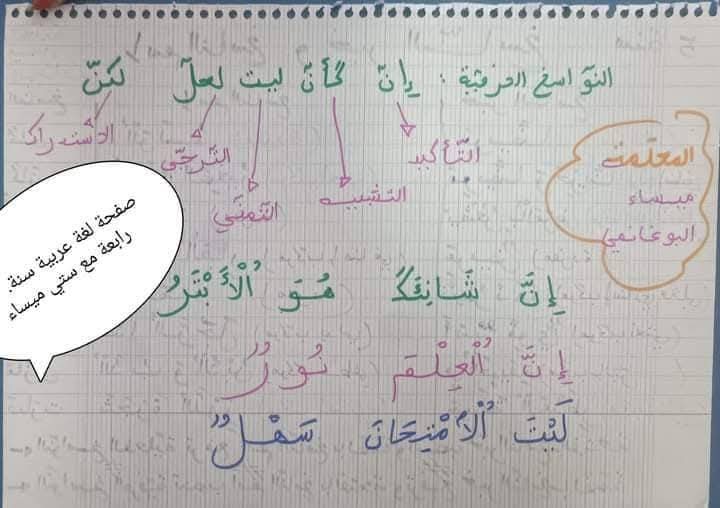 النواسخ الحرفيّة : إنّ كأنّ ليت لعلّ لكنّ
التّأكيد
التشبيه
التمنّي
التّرجّي
الاستدراك
المعلّمة
ميساء
البوغانمي
صفحة لغة عربية سنة.
رابعة مع ستي ميساء
إِنَّ شَانِئَكَ هُوَ الْأَبْتَرُ
إِنَّ الْعِلْمَ نُورٌ
لَيْتَ الْامْتِحَانَ سَهْلٌ